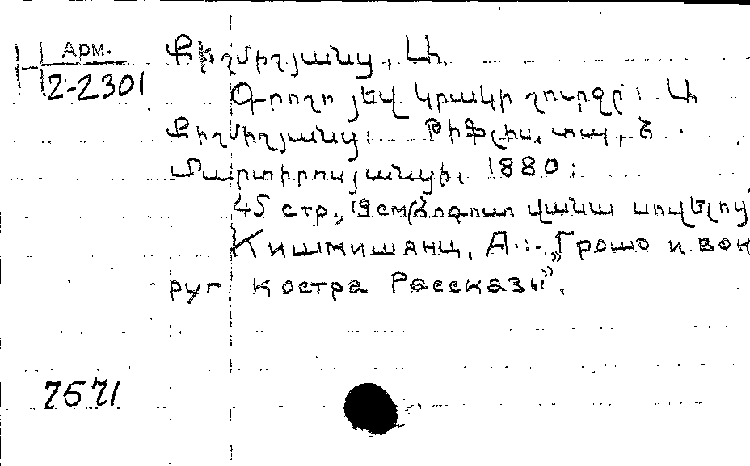 Арм.
2-2301
Քիշմիշյանց, Ա.
Գրոշո յեվ կրակի շուրջը։ Ա.
Քիշմիշյանց։ Թիֆլիս, տպ. Հ.
Մարտիրոսյանցի, 1880։
45 стр., 19 см վանա
Кишмишянц, А.:- „Грошо и вок
руг костра Рассказы”.
7571